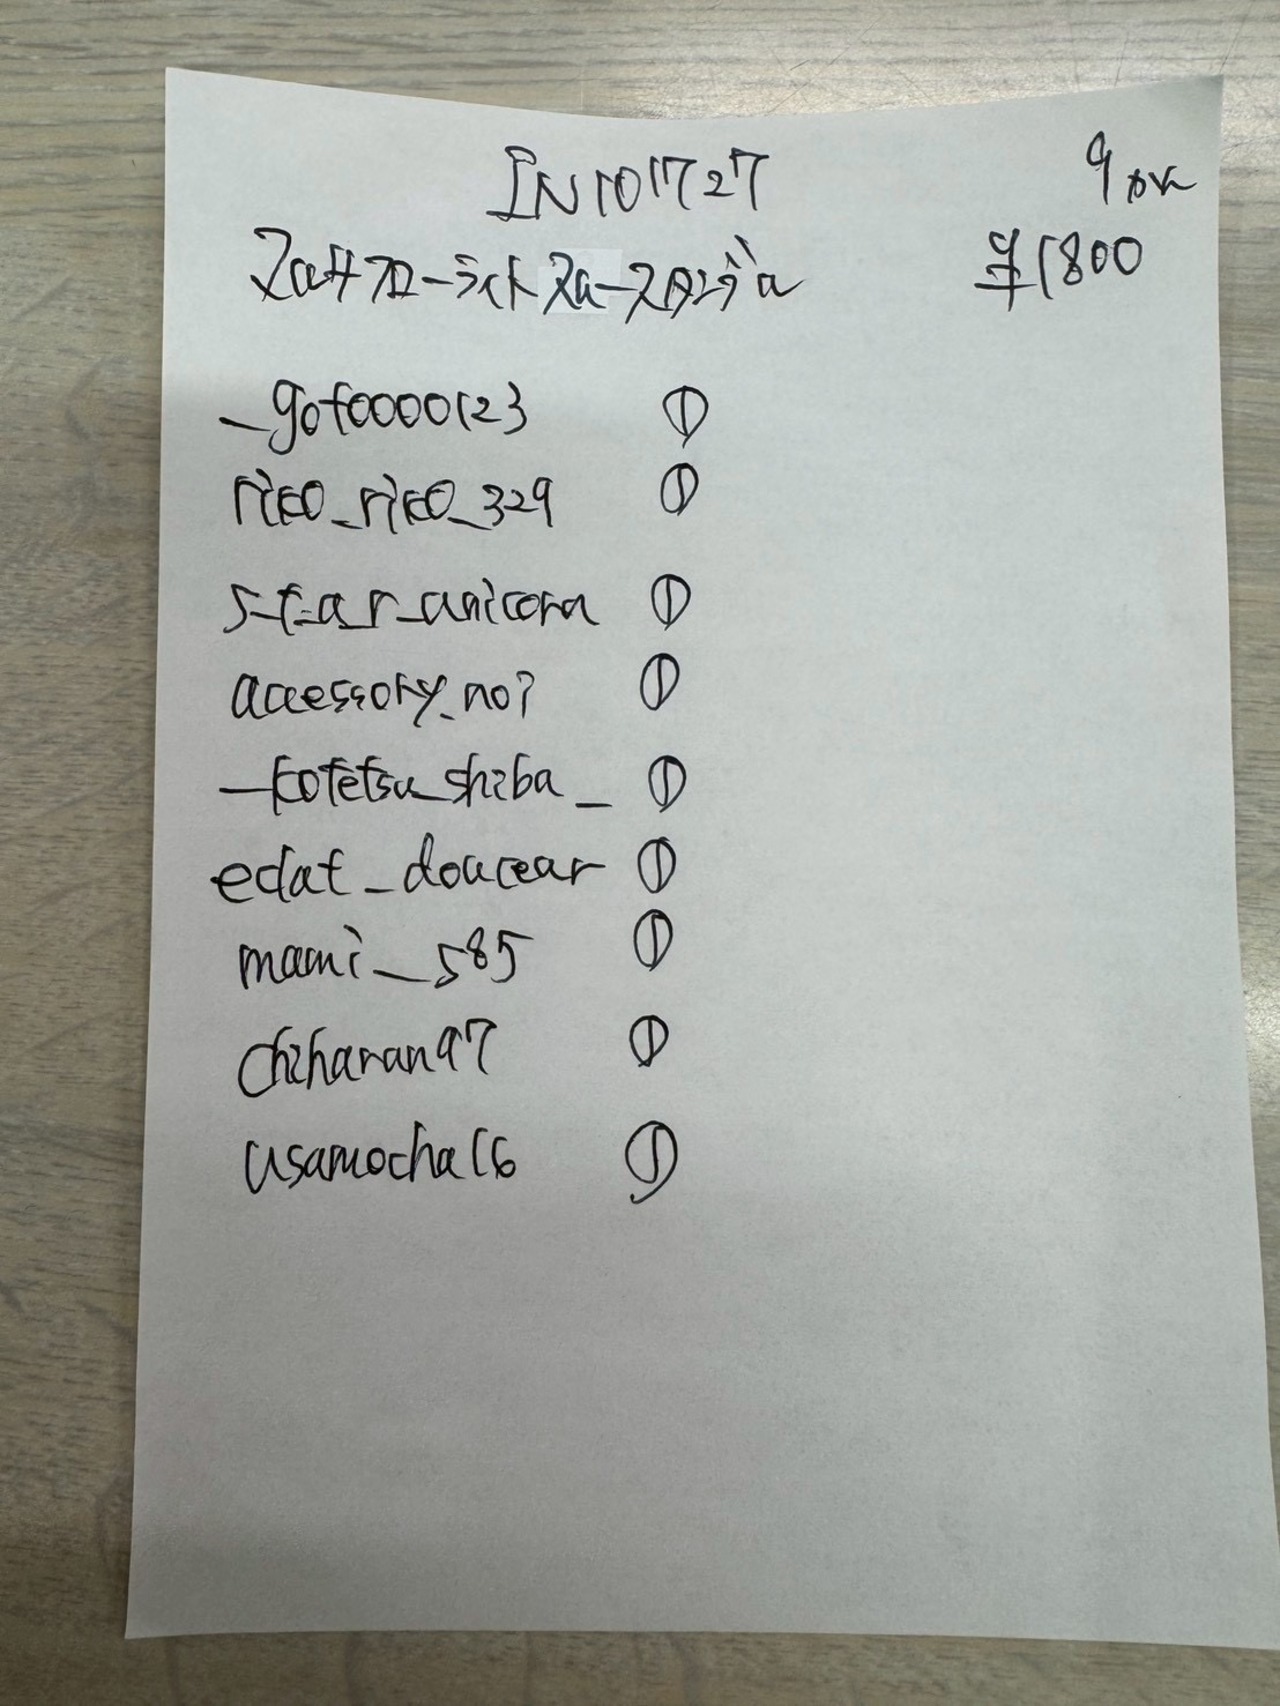 IN101727
9pk
フローライト
¥1800
_gof0000123 ①
rico_rico_329 ①
s_t_a_r_unicorn ①
accessory_no7 ①
_kotetsu_shiba_ ①
eclat_douceur ①
mami_585 ①
chiharan97 ①
usamocha16 ①